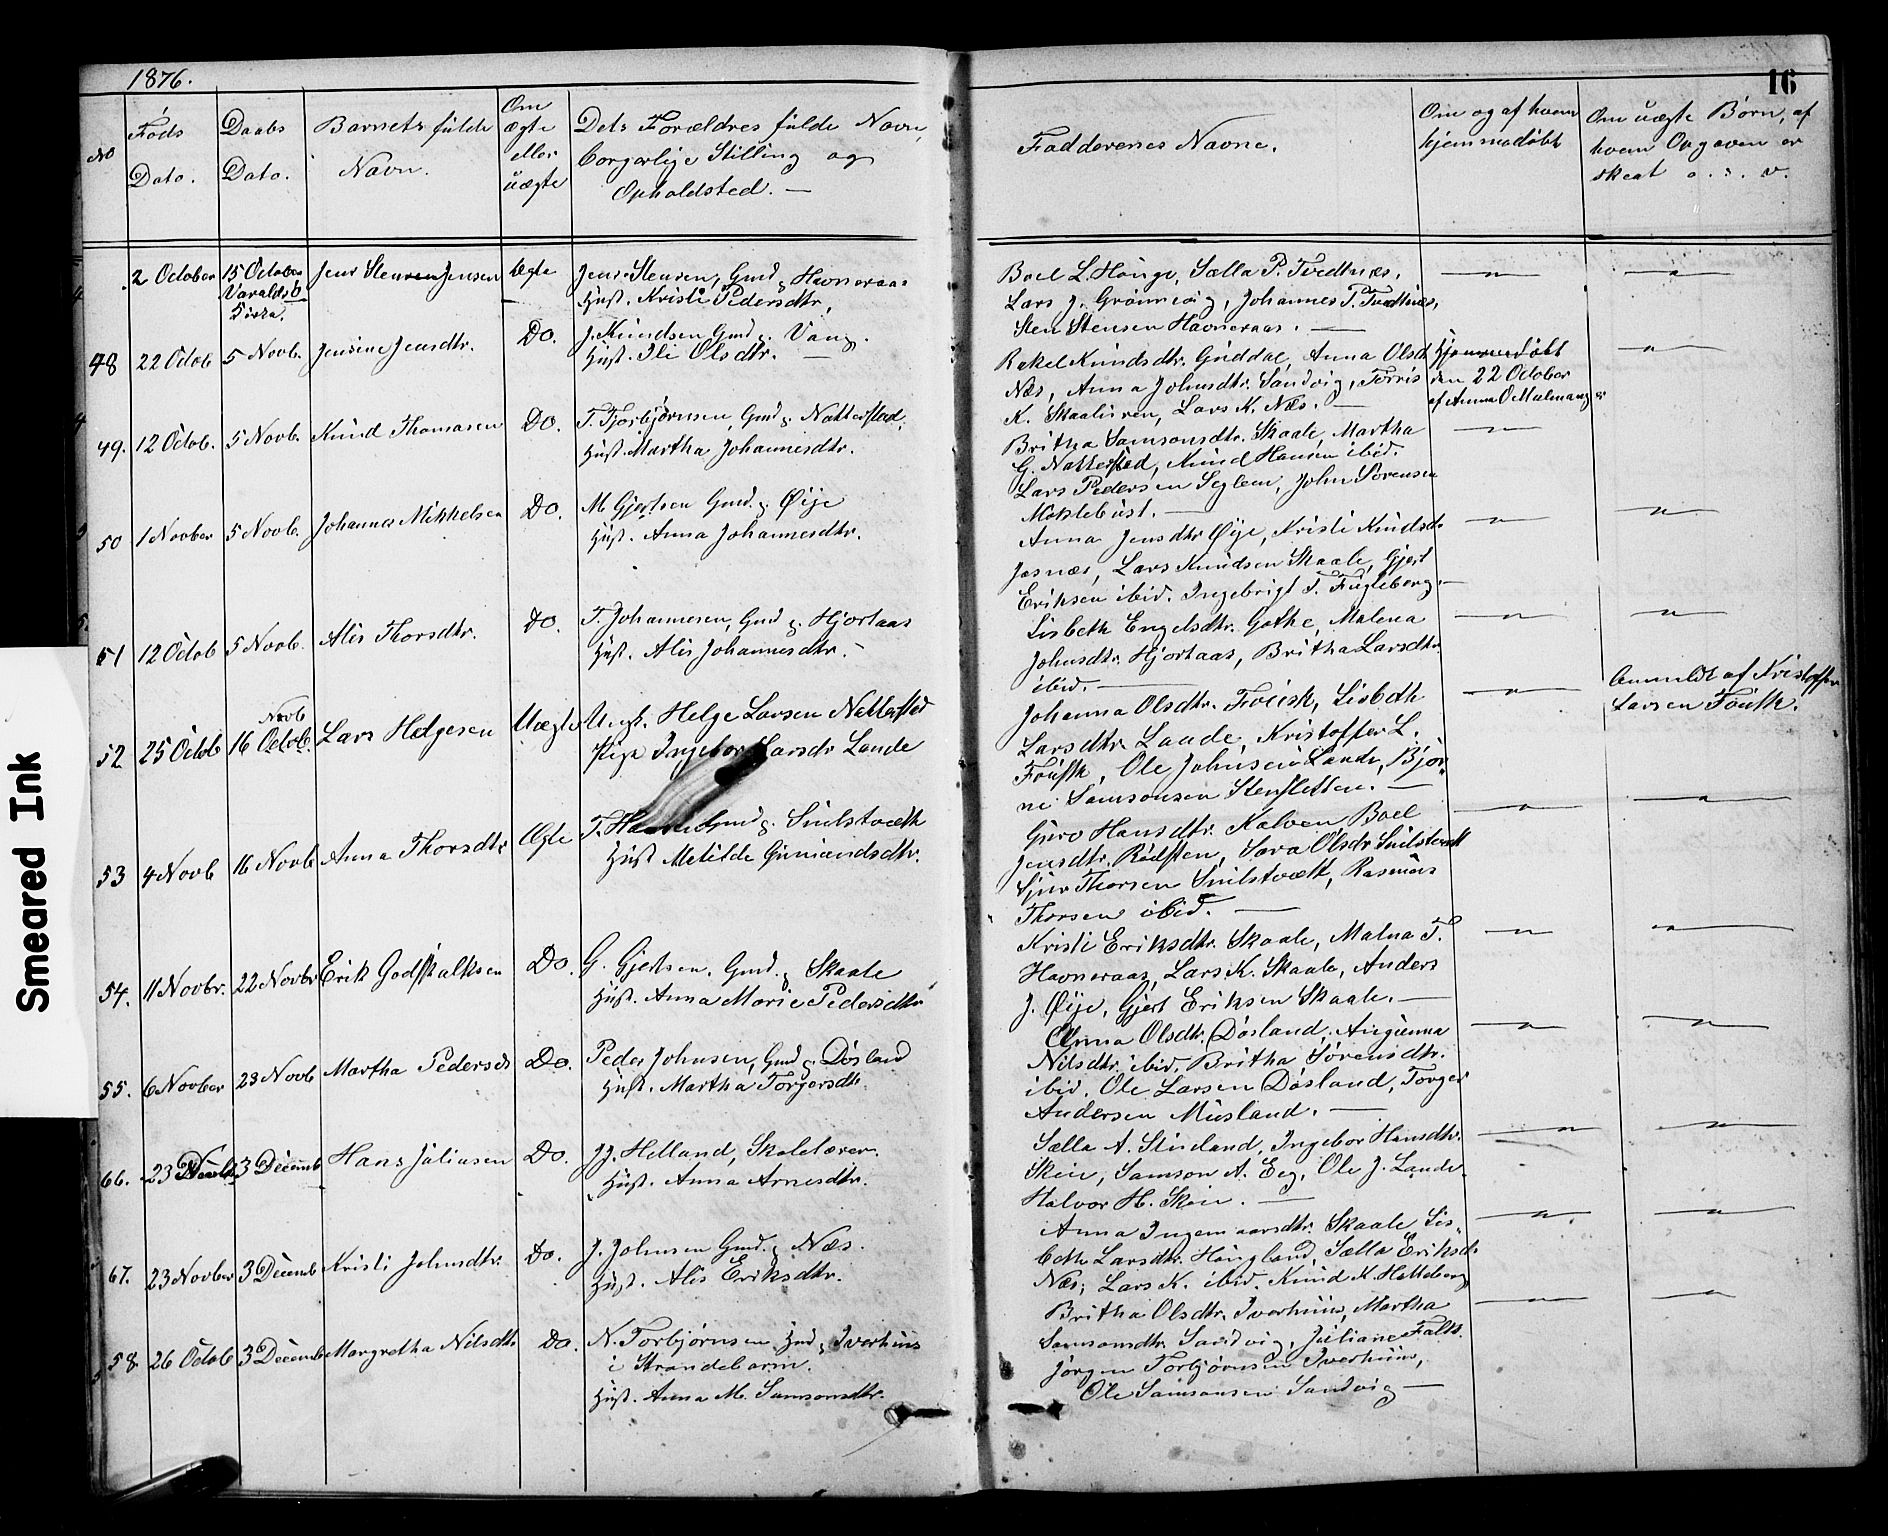 1876.
16
No
Føds Dato.
Daabs Dato.
Barnets fulde Navn.
Om ægte eller uægte
Dets Forældres fulde Navn, borgerlige Stilling og Opholdsted. —
Fadderenes Navne.
Om og af hvem hjemmedøbt
Om uægte Børn, af hvem Opgaven er skeat o. s. v.
2 October 15 October Jens Stensen Jensen Ægte Jens Stensen, Gmd. Havneraas
Varaldsö Kirke. Hust. Kristi Pedersdtr,
Boel L. Hauge, Sælla P. Tvedtnæs,
Lars J. Grønnevig, Johannes P. Tvedtnæs,
Sten Stensen Havneraas. —
48 22 Octob 5 Novb. Jensine Jensdtr. Do. J. Knudsen Gmd. Vang.
Hust. Ili Olsdtr. —
Rakel Knudsdtr. Guddal, Anna Olsd. Hjemmedöbt
Næs, Anna Johnsdtr. Sandvig, Torris den 22 October
K. Skaalevren, Lars K. Næs. — af Anna O Mælmanger
49. 12 Octob. 5 Novb. Knud Thomasen Do. T. Torbjørnsen, Gmd. Nattersted,
Hust. Martha Johannesdtr.
Britha Samsonsdtr. Skaale, Martha
G. Nattersted, Knud Hansen ibid.
Lars Pedersen Seglem, John Sörensen
Moklebust. —
50 1 Novber 5 Novb. Johannes Mikkelsen Do. M Gjertsen Gmd. Øije
Hust. Anna Johannesdtr.
Anna Jensdtr Øije, Kristi Knudsd.
Josnæs, Lars Knudsen Skaale, Gjert
Eriksen ibid. Ingebrigt T. Fugleberg. —
51 12 Octob 5 Novb. Alis Thorsdtr. Do. T. Johannesen, Gmd. Hjortaas
Hust. Alis Johannesdtr. —
Lisbeth Engelsdtr. Gothe, Malena
Johnsdtr. Hjortaas, Britha Larsdtr
ibid. —
52 25 Octob 16 Octob. Novb Lars Helgesen Uægte Ungk. Helge Larsen Nattersted
Pige Ingebor Larsdr Lande
Johanna Olsdtr. Fousk, Lisbeth
Larsdtr Lande, Kristoffer L.
Fousk, Ole Johnsen Lande, Bjør-
ne Samsonsen Stensletten. —
Anmeldt af Kristoffer
Larsen Fousk.
53 4 Novb 16 Novb Anna Thorsdtr Ægte T. Gmd. Snilstveth
Hust Metilde Gunnundsdtr.
Guro Hansdtr. Kalven Boel
Jensdtr. Rödsten, Sara Olsdr Snilstveth
Sjur Thorsen Snilstveth, Rasmus
Thorsen ibid. —
54. 11 Novbr. 22 Novbr Erik Godskalksen Do. G. Gjertsen. Gmd. Skaale
Hust. Anna Marie Pedersdtr
Kristi Eriksdtr. Skaale, Malna T.
Havneraas, Lars K. Skaale, Anders
J. Øije, Gjert Eriksen Skaale. —
55. 6 Novber 23 Novb Martha Pedersd Do. Peder Johnsen, Gmd. Døsland
Hust. Martha Torgersdtr.
Anna Olsdtr. Døsland, Angunna
Nilsdtr. ibid. Britha Sørensdtr.
ibid. Ole Larsen Døsland, Torger
Andersen Musland. —
66. 23 Novb 3 Decemb Hans Juliusen Do. J. J. Helland, Skolelærer.
Hust. Anna Arnesdtr.
Sælla A. Stueland, Ingebor Hansdtr.
Skeie, Samson A. Eeg, Ole J. Lande
Halvor H. Skeie. —
67. 23 Novber 3 Decemb Kristi Johnsdtr. Do. J. Johnsen Gmd. Næs.
Hust. Alis Eriksdtr.
Anna Ingemaarsdtr. Skaale, Lis-
beth Larsdtr. Haugland, Sælla Eriksd.
Næs, Lars K. ibid. Knud K. Hatteberg
58. 26 Octob 3 Decemb Margretha Nilsdtr Do. N. Torbjørnsen Gmd. Iverhuus
i Strandebarm.
Hust. Anna M. Samsonsdtr.
Britha Olsdtr. Iverhuus, Martha
Samsonsdtr. Sandvig, Juliane Falk.
Jørgen Torbjørnsen Iverhuus,
Ole Samsonsen Sandvig —
Smeared Ink